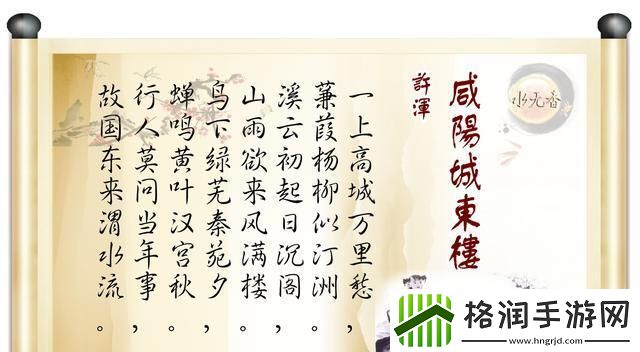 咸陽城東樓
許渾
一上高城万里愁，
蒹葭杨柳似汀洲。
溪云初起日沉阁，
山雨欲来风满楼。
鸟下绿芜秦苑夕，
蝉鸣黄叶汉宫秋。
行人莫问当年事，
故国东来渭水流。
水无香
格润手游网
www.hngrjd.com